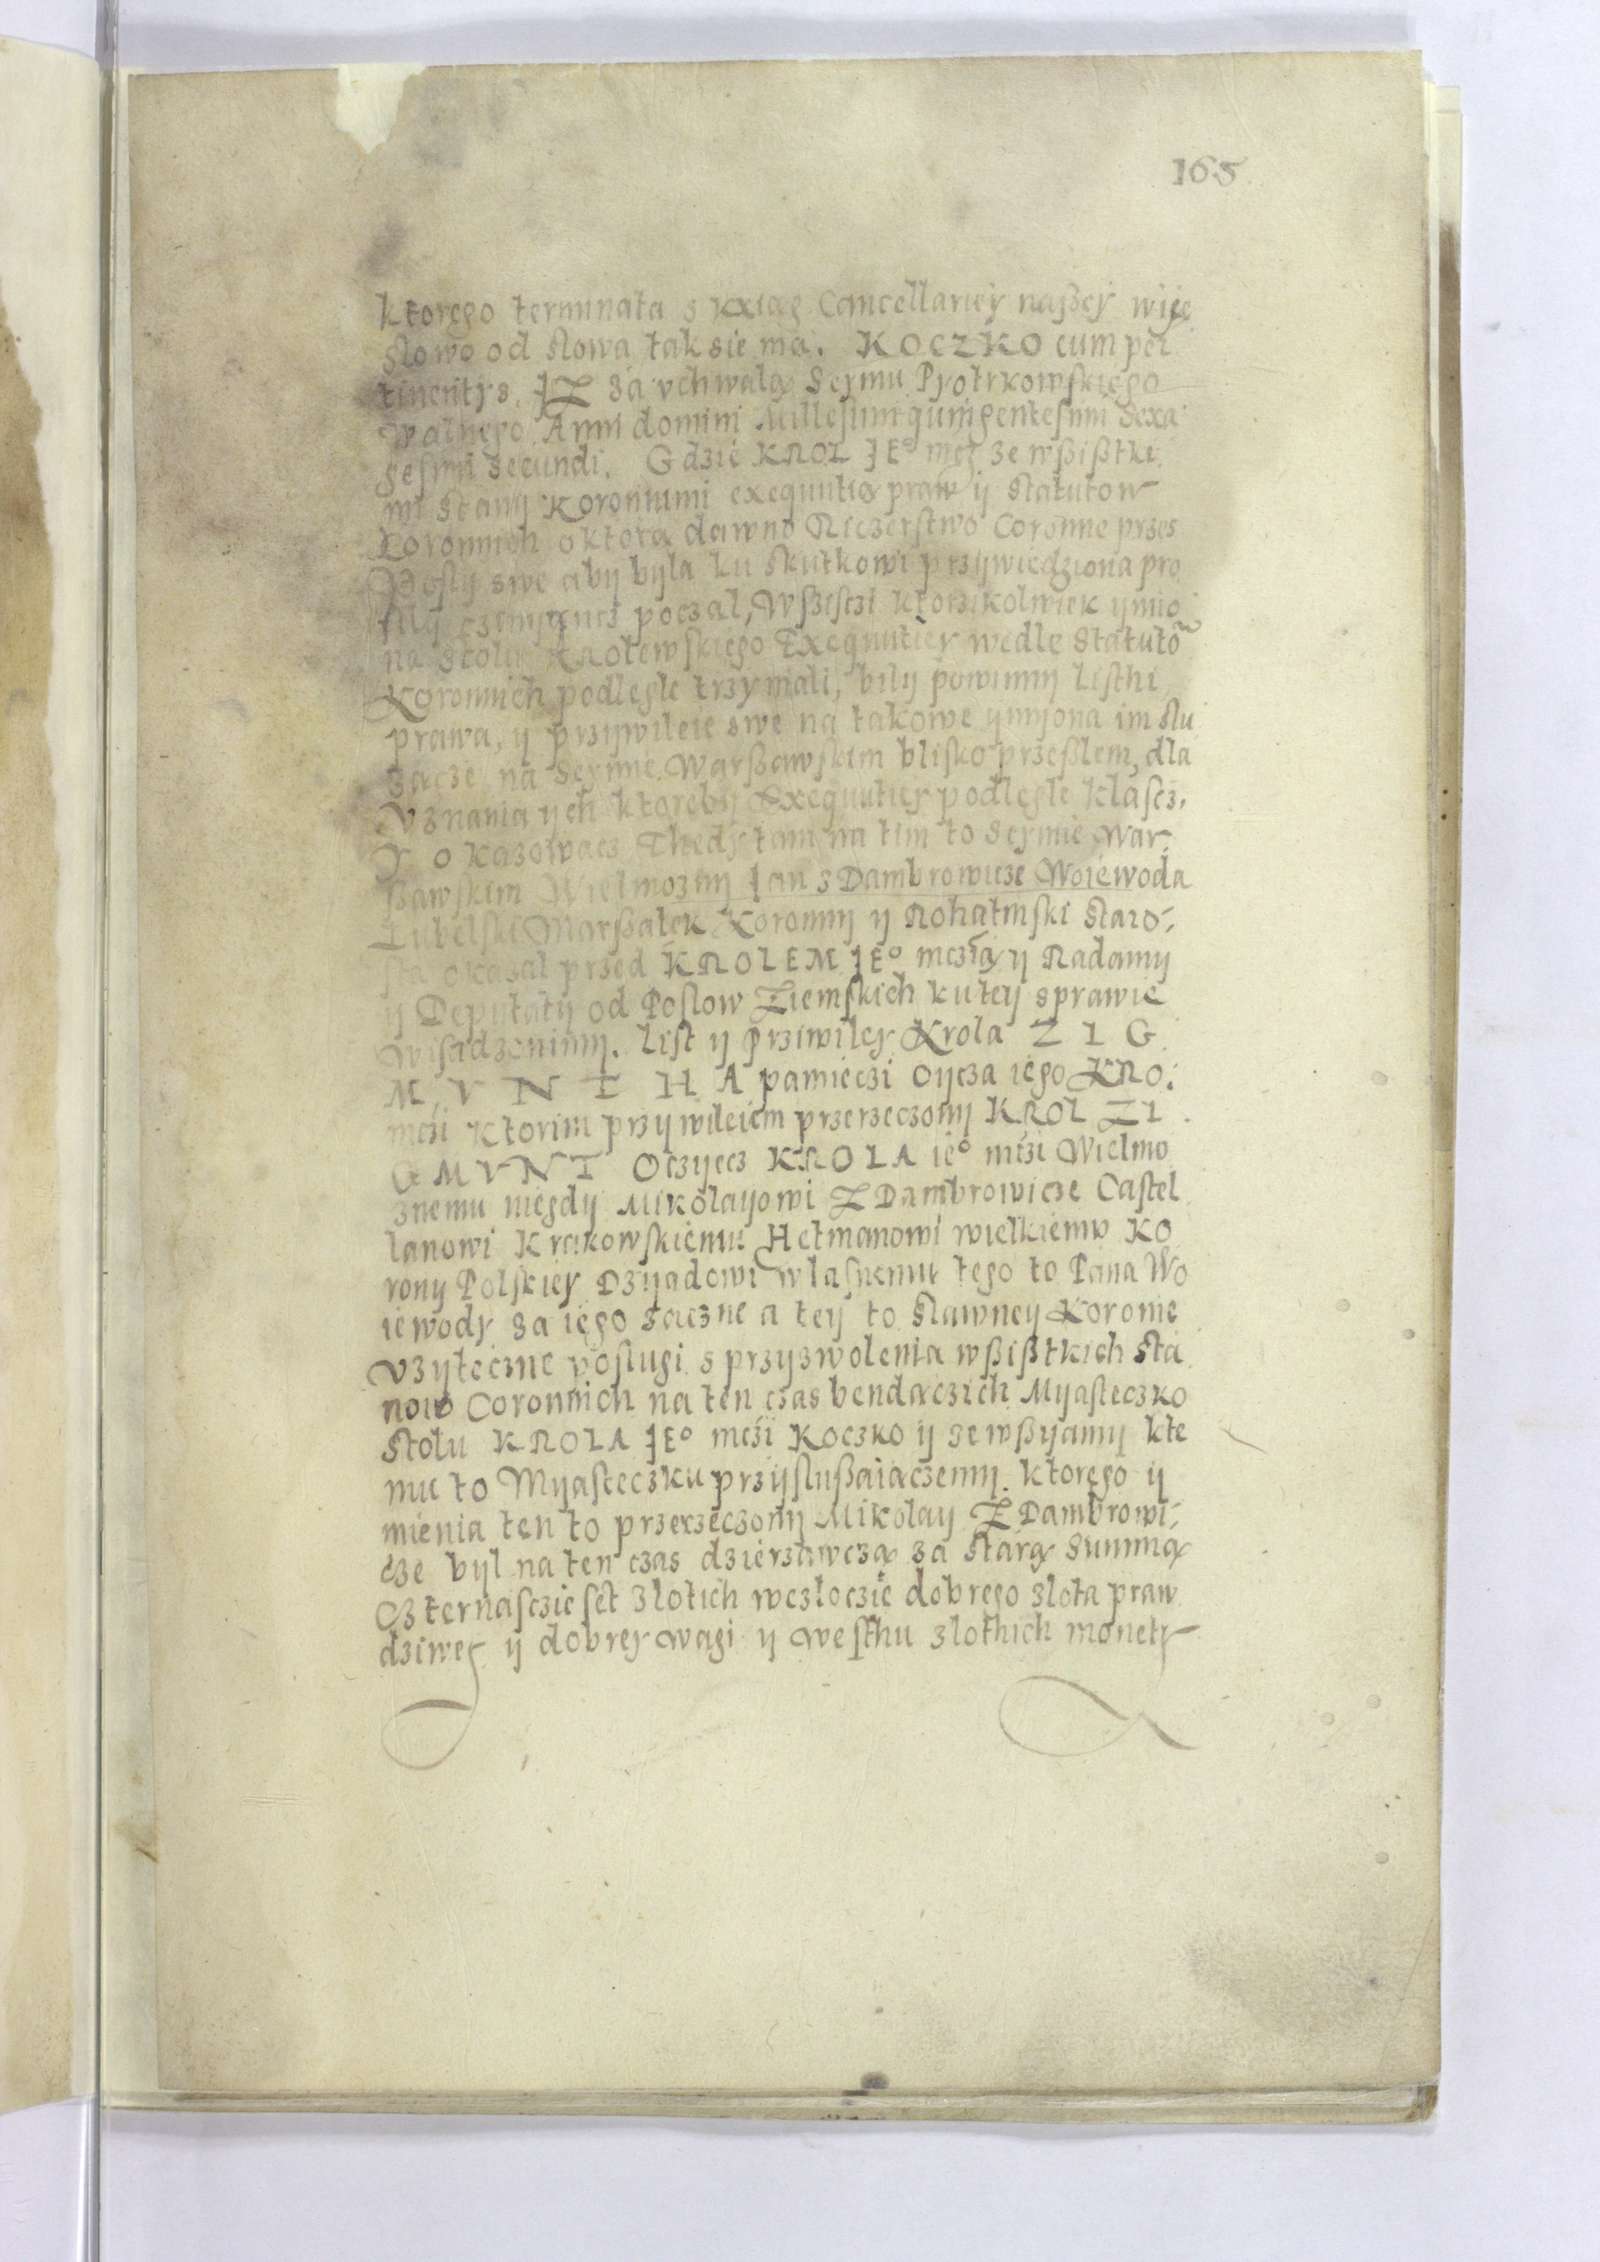 165
ktorego terminata s kxiag Cancellariey naßey wije
slowo od slowa tak sie ma. KOCZKO cum per
tinentys. JZ za vchwalą Seymu Pyotrkowskiego
walnego Anni domini Millesimi quingentesimi Sexa
gesimi Secundi. Gdzie KROL JEº mcz ze wßißtki
mi Stany Koronnimi exequutią praw ij Statutow
Coronnich o ktorą dawno Riczerstwo Coronne przes
Posly swe abij byla ku skutkowi przywiedziona pro
silij poczal, Wszisczi ktorzikolwiek ymio
na stolu Krolewskiego Exequutiey wedle Statutō
Koronnich podlegle trzymali, bily powinny Listhi
prawa, ij przywileie swe na takowe ymiona im slu
zacze na Seymie Warßawskim blisko przeßlem, dla
Vznania ych ktoreby Exequutiey podlegle klascz,
Y okazowacz Thedy tam na tim to Seymie War
ßawskim Wielmozny Jan z Dambrowicze Woiewoda
Lubelski Marßalek Koronny ij Rohatinski Staro,
sta okazal przed KROLEM JEº mczią ij Radamy
ij Deputaty od Poslow Ziemskich ku tey sprawie
wisadzonimy. List ij przywiley Krola ZIG
MVNTHA pamieczi oijcza iego KRO.
mczi ktorim przywileiem przerzeczony KROL ZI
GMVNT Oczijecz KROLA ieº mczi Wielmo
znemu niegdy Mikolayowi Z Dambrowicze Castel
lanowi Krakowskiemu Hetmanowi wielkiemu Ko
rony Polskiey Dziadowi wlasnemu tego to Pana Wo
iewody za iego zaczne a tey to slawney Koronie
Vzyteczne poslugi s przyzwolenia wßißtkich sta
now Coronnich na ten czas bendaczich Myasteczko
stolu KROLA JEº mczi Koczko ij ze wßyamy kte
mu to Myasteczku przyslußaiaczemy. ktorego ij
mienia ten to przerzeczony Mikolay Z Dambrowi,
cze byl na ten czas dzierzawczą za starą summą
Czternasczie set zlotich w zloczie dobrego zlota praw
dziwey ij dobrey wagi ij we sthu zlothich monety